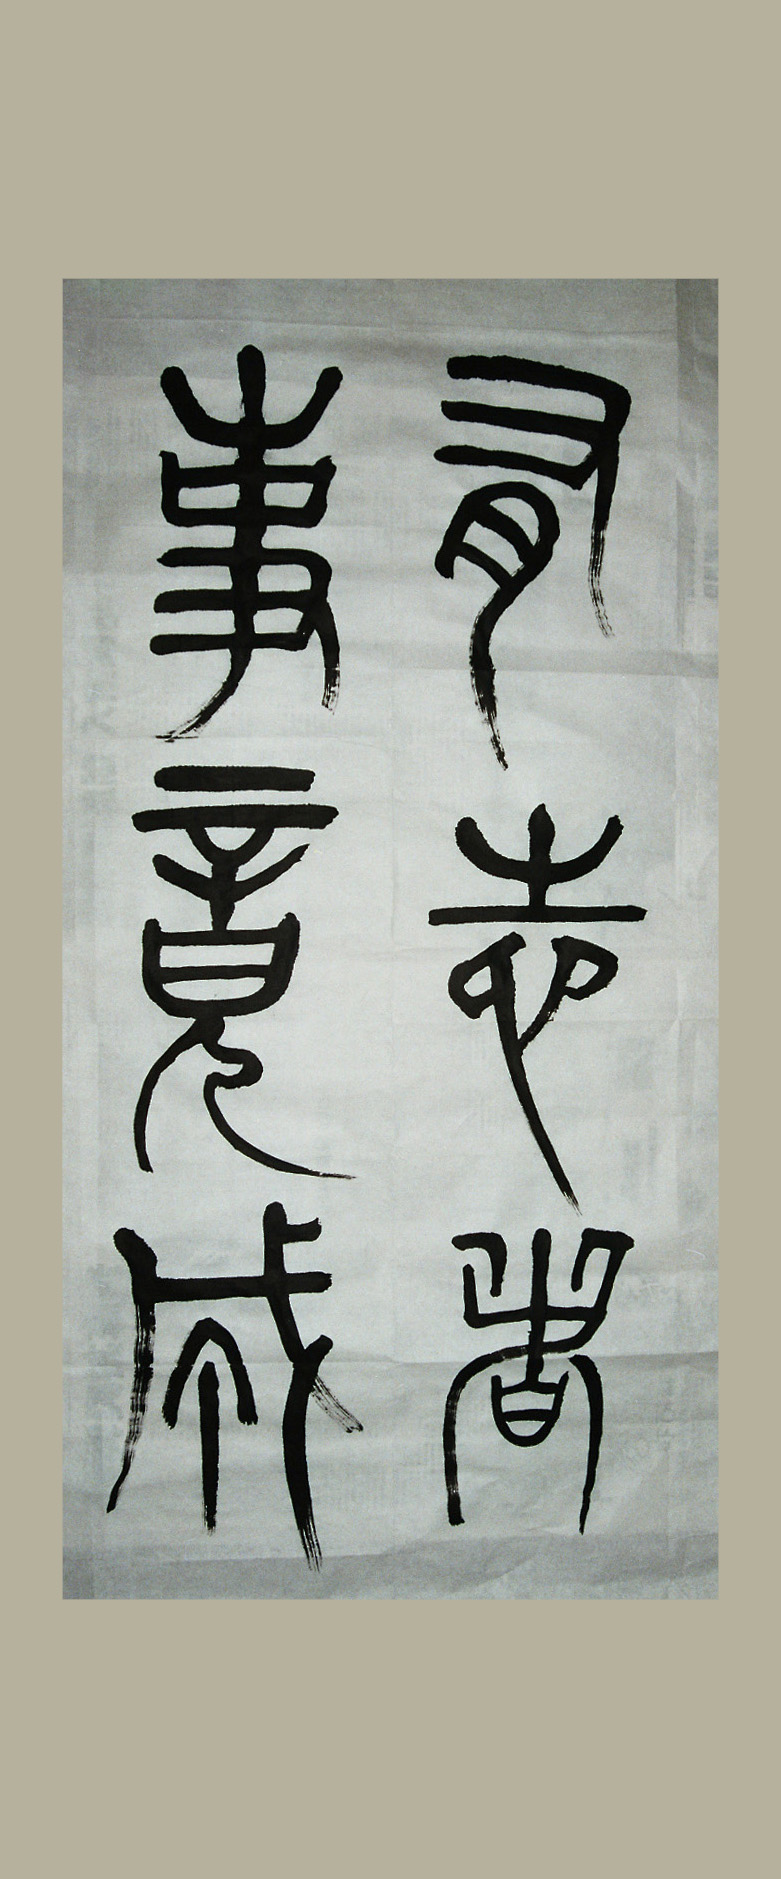 有志者
事竟成